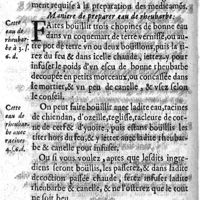 ment requise à la preparation des medicamẽs.
Maniere de preparer eau de rheubarbe.
Cette
eau de
rheubar-
be a 3. s.
6. d.
FAites bouillir trois chopines de bonne eau
dans vn coquemart de terre vernissé, ou au-
tre pot de terre vn ou deux bouillons, puis la ti-
rés du feu & dans cette eau chaude, iettez pour
infuser le poids d'vn escu de bonne rheubarbe
decoupée en petits morceaux, ou concassée dans
le mortier, & vn peu de canelle, & vsez selon
le conseil.
Cette
eau de
rheubar-
be auec
racines
4. s. 6. d.
On peut faire bouillir auec ladite eau, racines
de chiendan, d'ozeille, reglisse, racleure de cor-
ne de cerf & d'yuoire, puis estans bouillies, les
faut tirer hors du feu, & y ietter auec ladite rheu-
barbe & canelle pour infuser.
Ou si vous voulez, apres que lesdits ingre-
diens seront bouillis, les passerez, & dans ladite
decoction passée chaude, ferés infuser ladite
rheubarbe & canelle, & estouperez le tout que